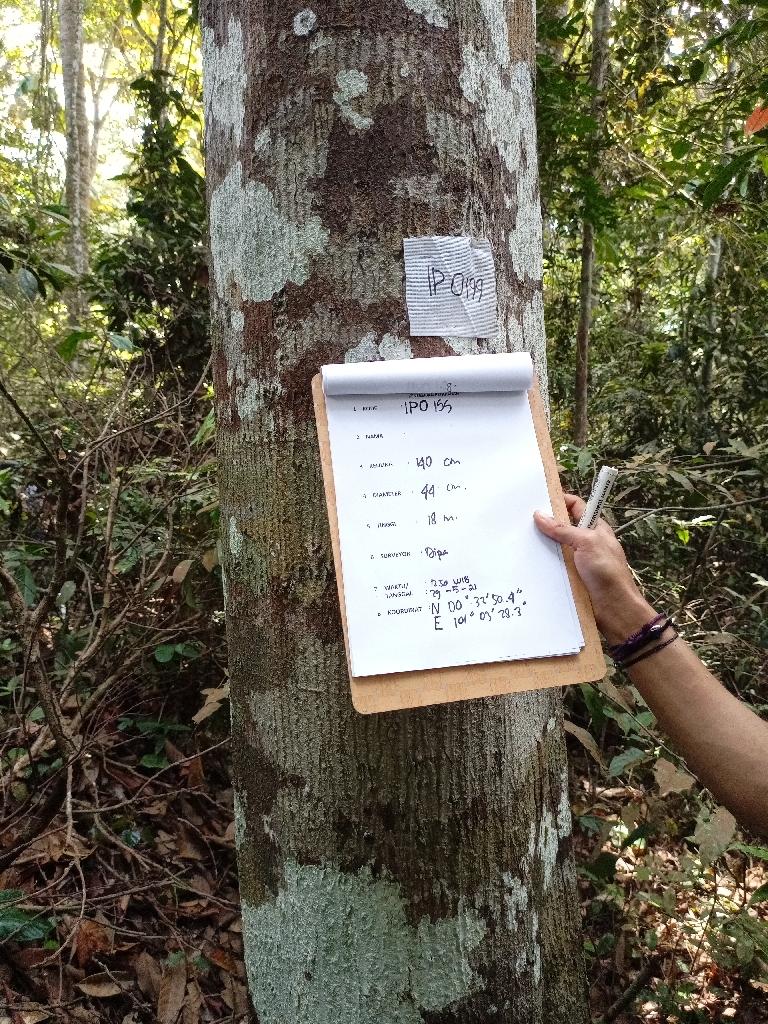 IPO 199
1 KODE : IPO 155
2 NAMA :
3 KELILING : 140 cm
4 DIAMETER : 44 cm.
5 TINGGI : 18 m.
6 SURVEYOR : Dipa
7 WAKTU/ : WIB
TANGGAL : 29-5-21
8 KOORDINAT : N 00° 33' 50.4"
E 101° 03' 28.3"